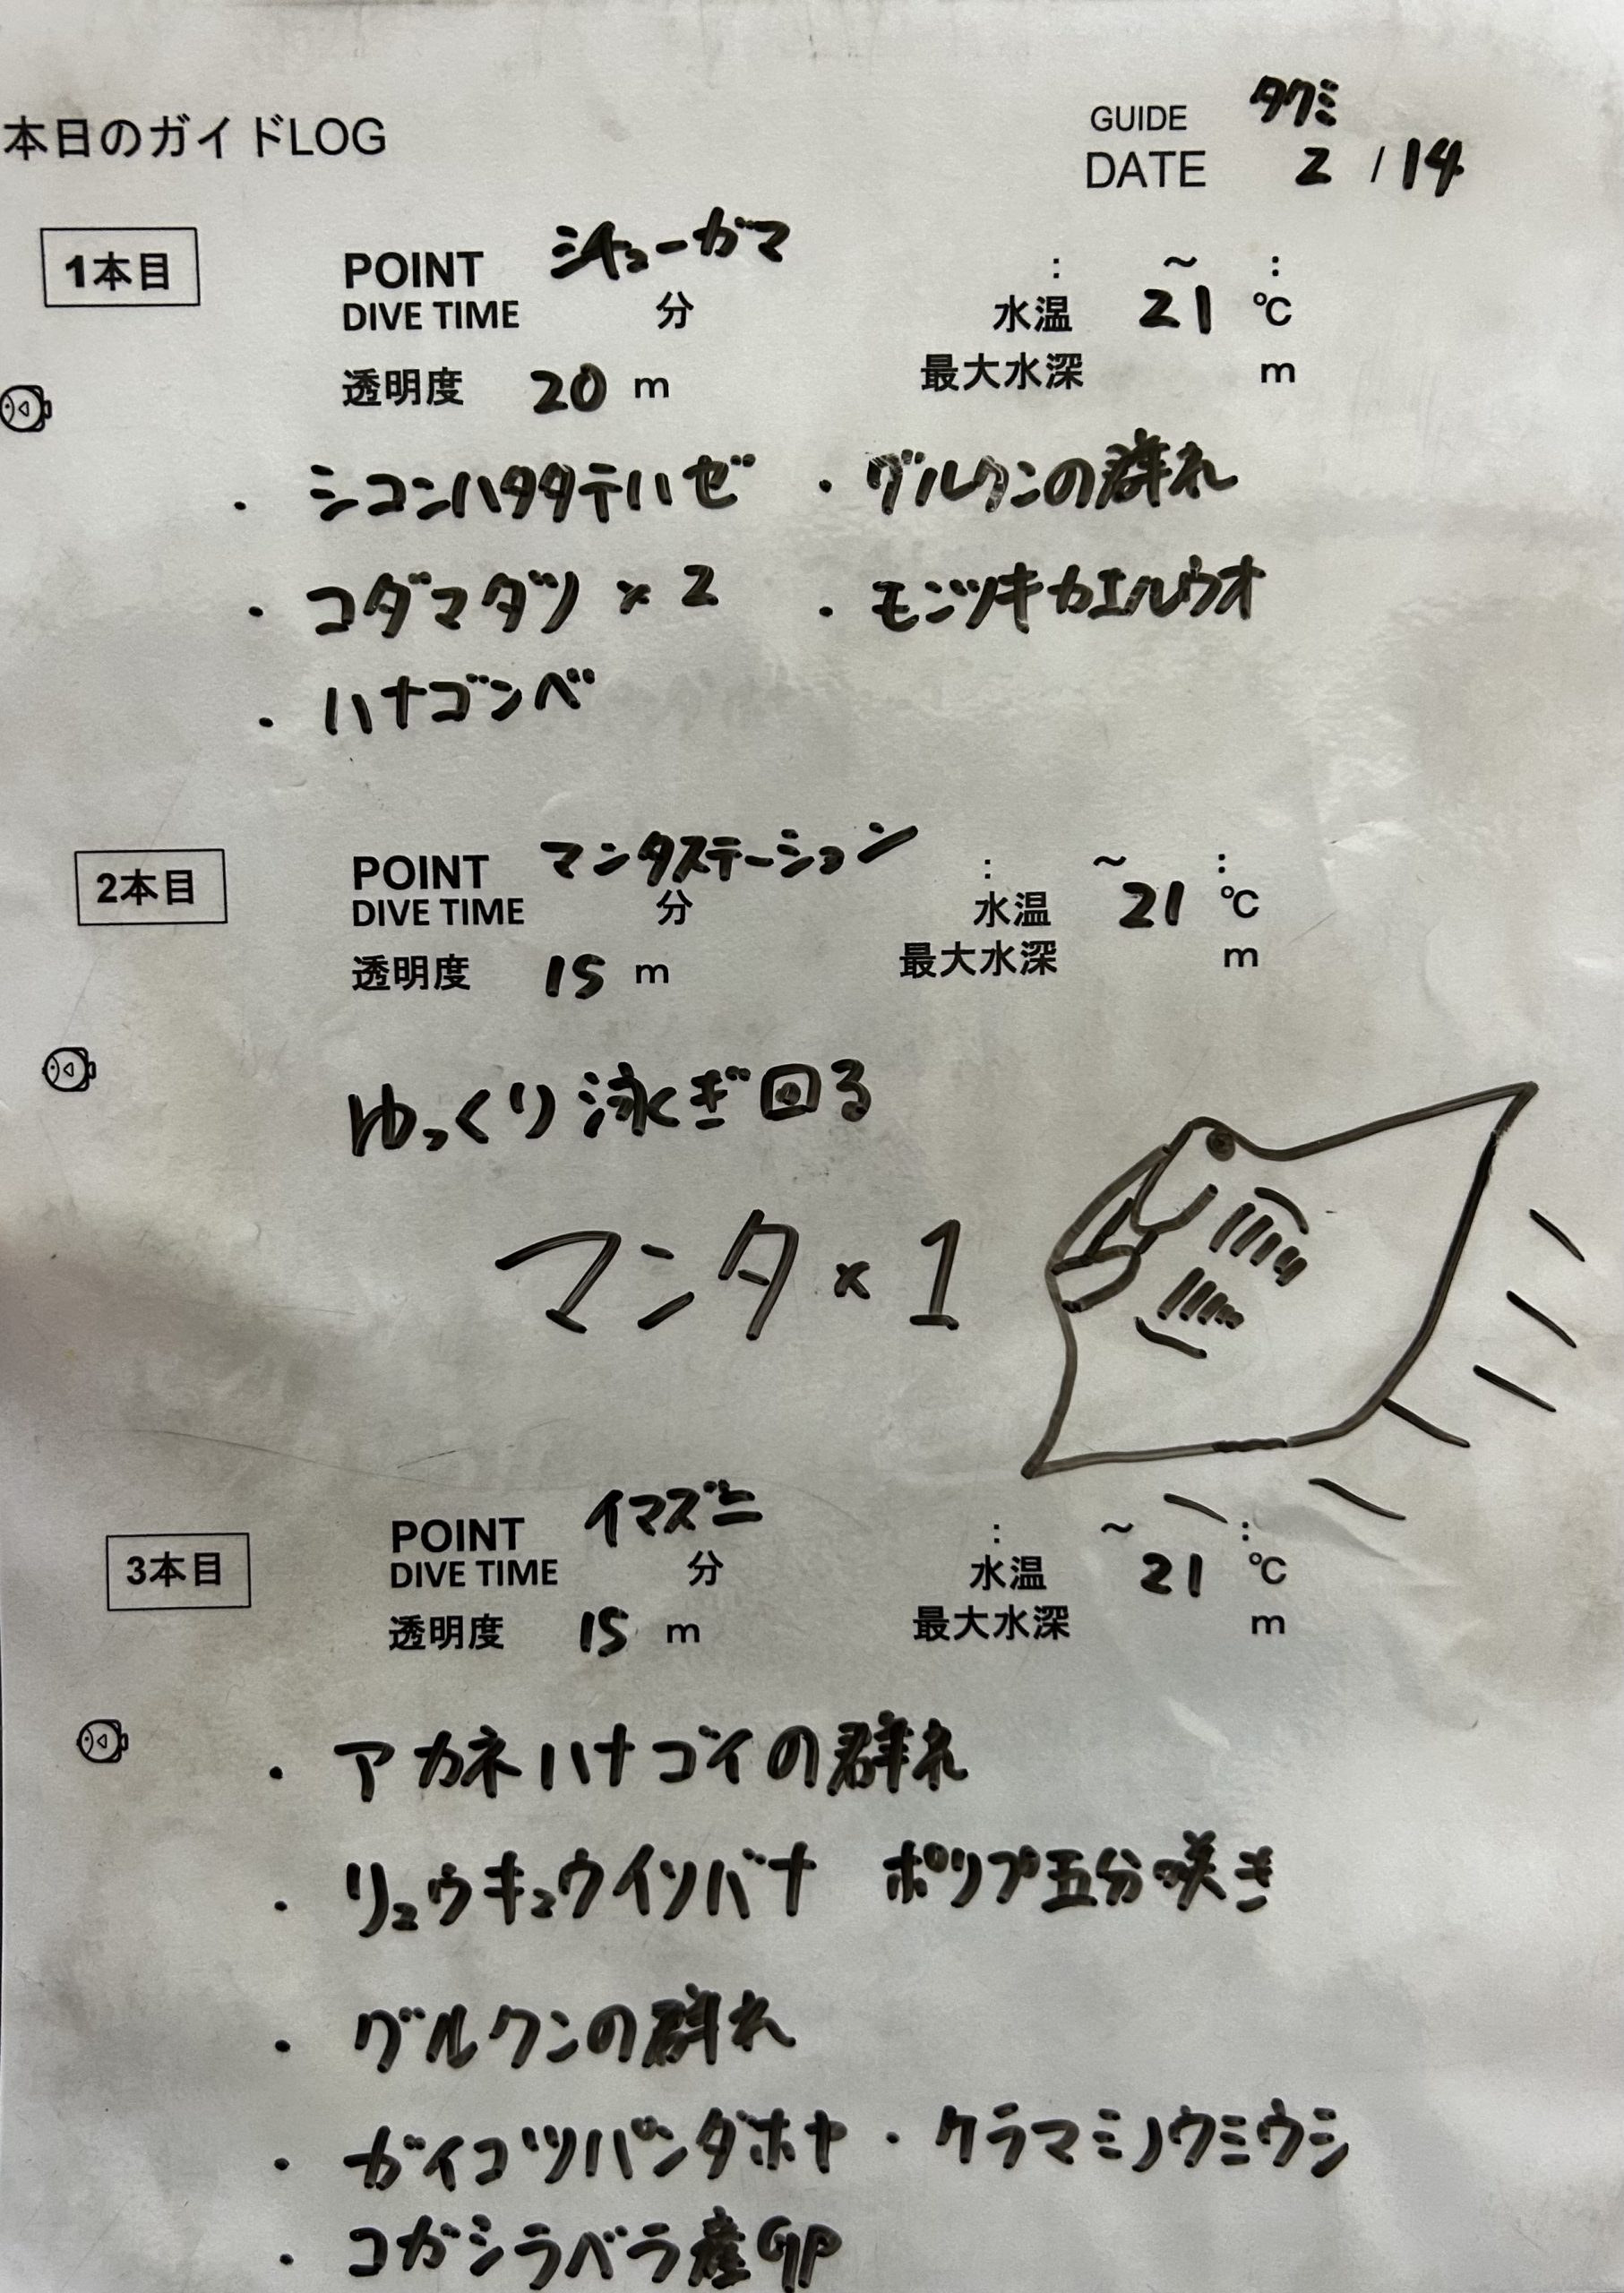 本日のガイドLOG
GUIDE タクミ
DATE 2 / 14
1本目
POINT シチューガマ : ~ :
DIVE TIME 分 水温 21 ℃
透明度 20 m 最大水深 m
・シコンハタタテハゼ ・グルクンの群れ
・コダマタツ × 2 ・モンツキカエルウオ
・ハナゴンベ
2本目
POINT マンタステーション : ~ :
DIVE TIME 分 水温 21 ℃
透明度 15 m 最大水深 m
ゆっくり泳ぎ回る
マンタ × 1
3本目
POINT イマズニ : ~ :
DIVE TIME 分 水温 21 ℃
透明度 15 m 最大水深 m
・アカネハナゴイの群れ
・リュウキュウイソバナ ポリプ五分咲き
・グルクンの群れ
・ガイコツパンダホヤ ・クラマミノウミウシ
・コガシラベラ産卵